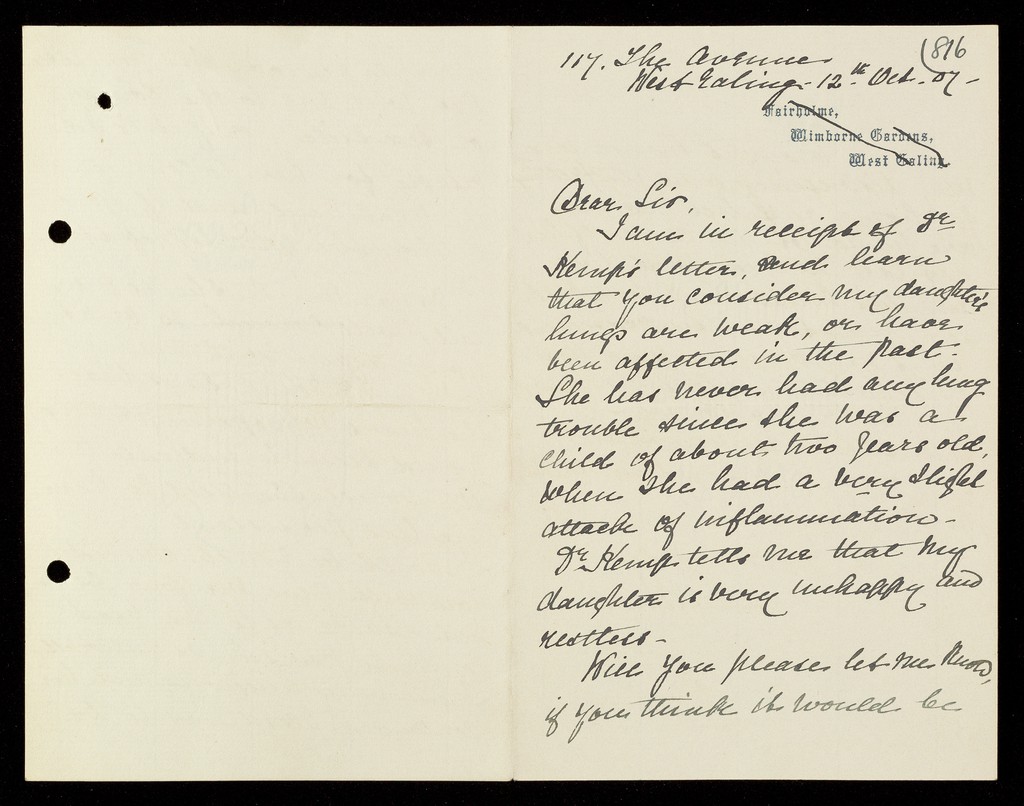 816
117. The Avenue
West Ealing - 12th Oct. 07 -
Fairholme,
Wimborne Gardens,
West Ealing.
Dear Sir,
I am in receipt of Dr
Kemp's letter, and learn
that you consider my daughter's
lungs are weak, or have
been affected in the past.
She has never had any lung
trouble since she was a
child of about two years old,
when she had a very slight
attack of inflammation -
Dr Kemp tells me that my
daughter is very unhappy and
restless -
Will you please let me know,
if you think it would be